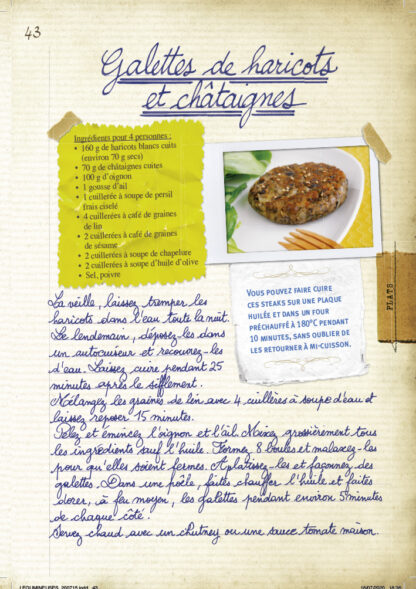 43
Galettes de haricots
et châtaignes
Ingrédients pour 4 personnes :
• 160 g de haricots blancs cuits
(environ 70 g secs)
• 70 g de châtaignes cuites
• 100 g d'oignon
• 1 gousse d'ail
• 1 cuillerée à soupe de persil
frais ciselé
• 4 cuillerées à café de graines
de lin
• 2 cuillerées à café de graines
de sésame
• 2 cuillerées à soupe de chapelure
• 2 cuillerées à soupe d'huile d'olive
• Sel, poivre
Vous pouvez faire cuire
ces steaks sur une plaque
huilée et dans un four
préchauffé à 180°C pendant
10 minutes, sans oublier de
les retourner à mi-cuisson.
PLATS
La veille, laissez tremper les
haricots dans l'eau toute la nuit.
Le lendemain, déposez-les dans
un autocuiseur et recouvrez-les
d'eau. Laissez cuire pendant 25
minutes après le sifflement.
Mélangez les graines de lin avec 4 cuillères à soupe d'eau et
laissez reposer 15 minutes.
Pelez et émincez l'oignon et l'ail. Mixez grossièrement tous
les ingrédients sauf l'huile. Formez 8 boules et malaxez-les
pour qu'elles soient fermes. Aplatissez-les et façonnez des
galettes. Dans une poêle, faites chauffer l'huile et faites
dorer, à feu moyen, les galettes pendant environ 5 minutes
de chaque côté.
Servez chaud avec un chutney ou une sauce tomate maison.